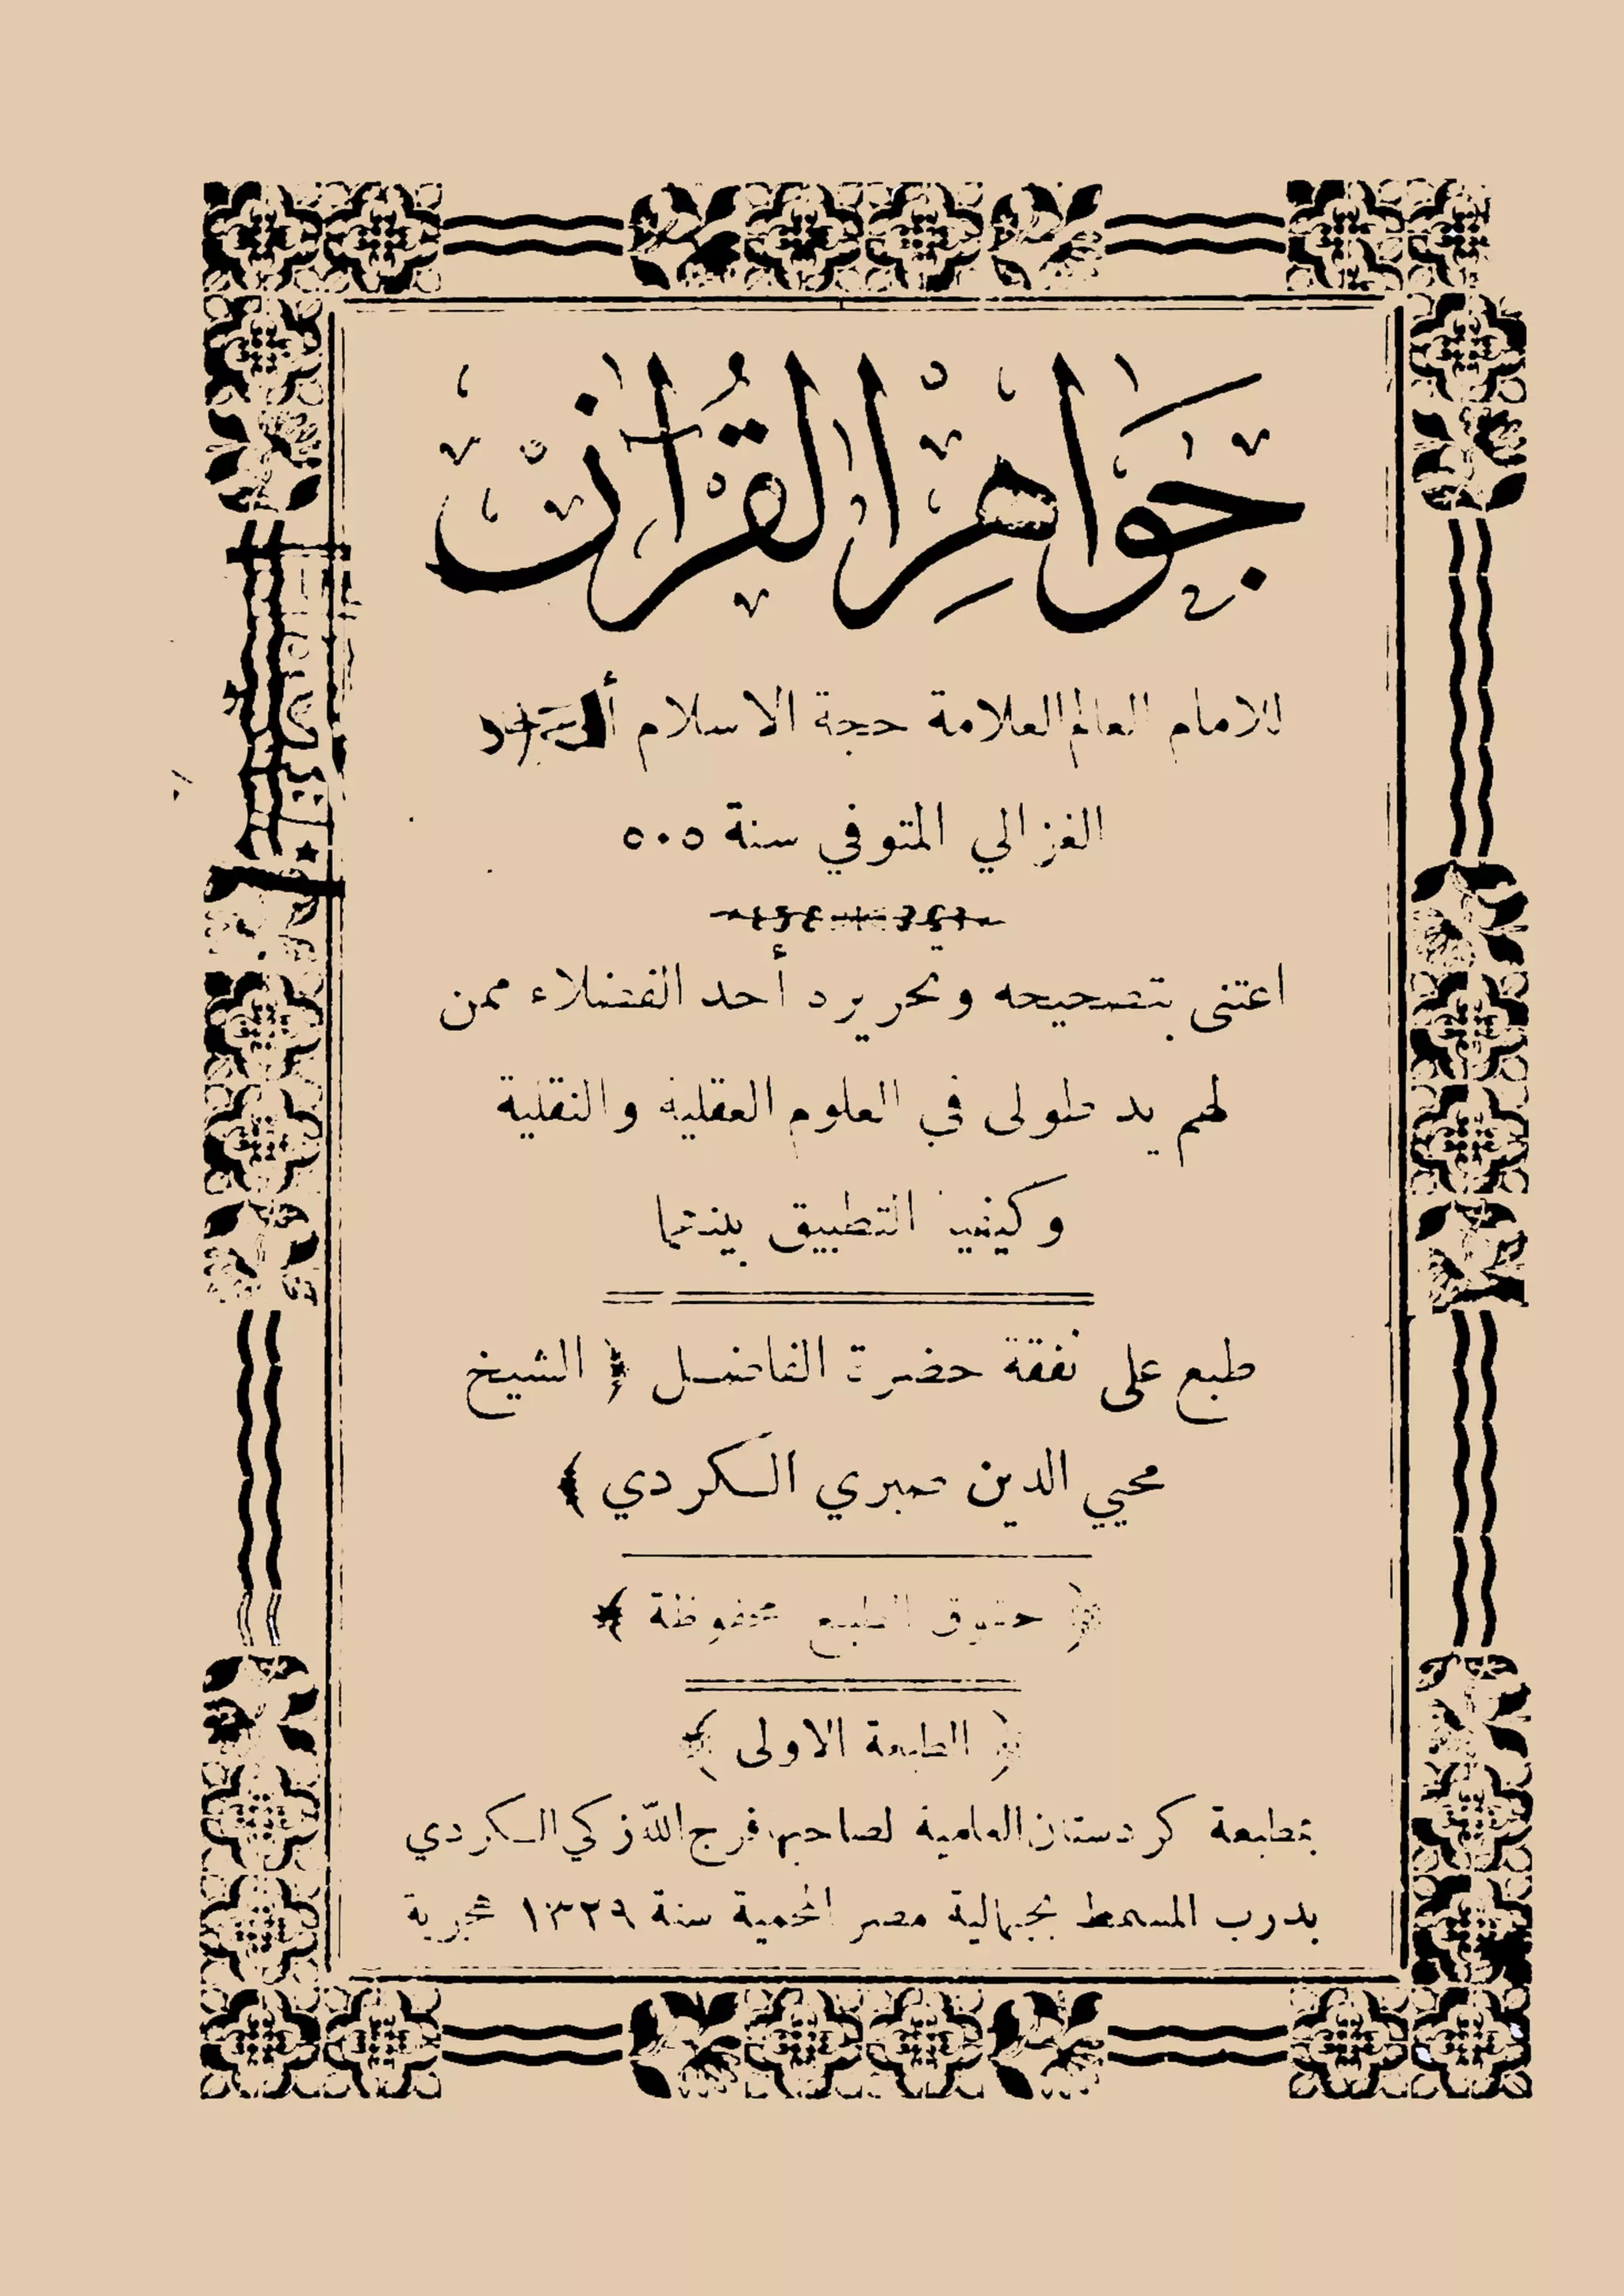 جَوَاهِرُ الْقُرْآن
للامام العالم العلامة حجة الاسلام أبي حامد
الغزالي المتوفي سنة ٥٠٥
اعتنى بتصحيحه وتحريره أحد الفضلاء ممن
لهم يد طولى في العلوم العقلية والنقلية
وكيفية التطبيق بينهما
طبع على نفقة حضرة الفاضل ﴿ الشيخ
محيي الدين صبري الكردي ﴾
﴿ حقوق الطبع محفوظة ﴾
﴿ الطبعة الاولى ﴾
بمطبعة كردستان العلمية لصاحبها فرج الله زكي الكردي
بدرب المسمط بجمالية مصر المحمية سنة ١٣٢٩ هجرية